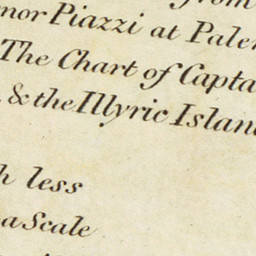 from
nor Piazzi at Paler
The Chart of Capta
& the Illyric Islan
h less
a Scale